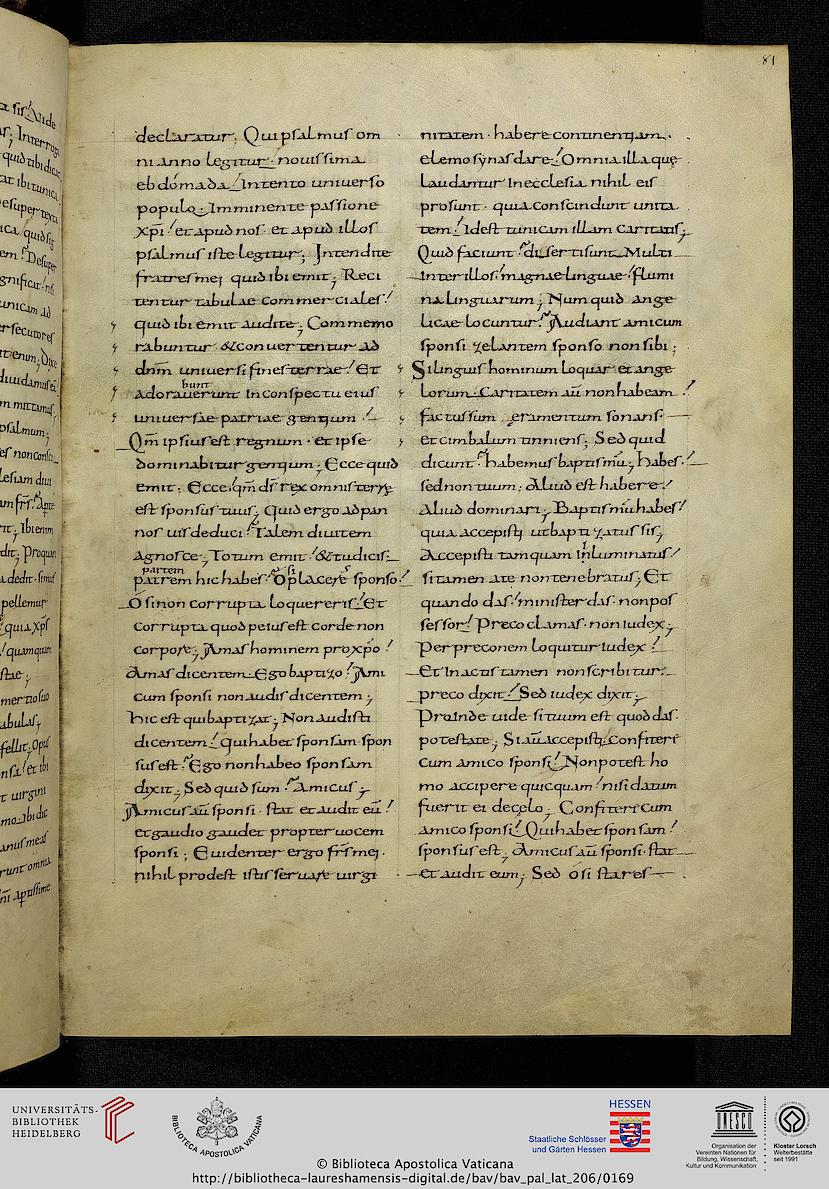 81
declaratur; Qui psalmus om
ni anno legitur · nouissima
ebdomada! Intento uniuerso
populo; Imminente passione
xp̄i! et apud nos · et apud illos
psalmus iste legitur; Intendite
fratres mei quid ibi emit; Reci
tentur tabulae commerciales!
quid ibi emit audite; Commemo
rabuntur · & conuertentur ad
dn̄m uniuersi fines terrae! Et
bunt
adorauerunt in conspectu eius
uniuersae patriae gentium!
Qm̄ ipsius est regnum · et ipse
dominabitur gentium; Ecce quid
emit; Ecce! qm̄ ds̄ rex omnis terrę
est sponsus tuus; Quid ergo ad pan
nos uis deduci? Talem diuitem
agnosce; Totum emit! & tu dicis;
partem si
patrem hic habes? O placeres sponso!
O si non corrupta loquereris! Et
corrupta quod peius est corde non
corpore; Amas hominem pro xp̄o!
Amas dicentem Ego baptizo! Ami
cum sponsi non audis dicentem;
hic est qui baptizat; Non audisti
dicentem! Qui habet sponsam spon
sus est? Ego non habeo sponsam
dixit; Sed quid sum? Amicus;
Amicus aū sponsi · stat et audit eū!
et gaudio gaudet propter uocem
sponsi; Euidenter ergo fr̄s mei ·
nihil prodest istis seruare uirgi
nitatem · habere continentiam ·
elemosynas dare! Omnia illa quę
laudantur in ecclesia nihil eis
prosunt · quia conscindunt unita
tem! Id est tunicam illam caritatis;
Quid faciunt? diserti sunt Multi
inter illos! magnae linguae! Flumi
na linguarum; Numquid ange
licae locuntur? Audiant amicum
sponsi zelantem sponso non sibi;
Si linguis hominum loquar et ange
lorum · Caritatem aū non habeam!
factus sum eramentum sonans ·
et cimbalum tinniens; Sed quid
dicunt? habemus baptismū; habes!
sed non tuum; Aliud est habere!
Aliud dominari; Baptismū habes!
quia accepisti ut baptizatus sis;
Accepisti tamquam inluminatus!
si tamen a te non tenebratus; Et
quando das! minister das · non pos
sessor! Preco clamas · non iudex;
Per preconem loquitur iudex!
Et in actis tamen non scribitur ·
preco dixit! Sed iudex dixit;
Proinde uide si tuum est quod das ·
potestate; Si aū accepisti; confitere
cum amico sponsi! Non potest ho
mo accipere quicquam! nisi datum
fuerit ei de cęlo; Confitere cum
amico sponsi! Qui habet sponsam!
sponsus est; Amicus aū sponsi · stat
et audit eum; Sed o si stares
UNIVERSITÄTS-
BIBLIOTHEK
HEIDELBERG
BIBLIOTHECA APOSTOLICA VATICANA
HESSEN
Staatliche Schlösser
und Gärten Hessen
UNESCO
Organisation der
Vereinten Nationen für
Bildung, Wissenschaft,
Kultur und Kommunikation
Kloster Lorsch
Welterbestätte
seit 1991
© Biblioteca Apostolica Vaticana
http://bibliotheca-laureshamensis-digital.de/bav/bav_pal_lat_206/0169